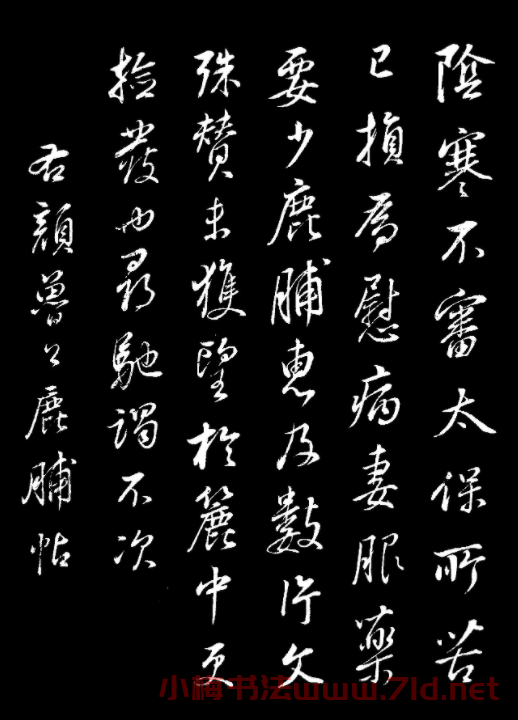 陰寒不審太保所苦
已損為慰病妻服藥
要少鹿脯惠及數片文
殊賛未獲望於簏中更
撿發也尋馳謁不次
右顏魯公鹿脯帖
小梅书法www.7ld.net